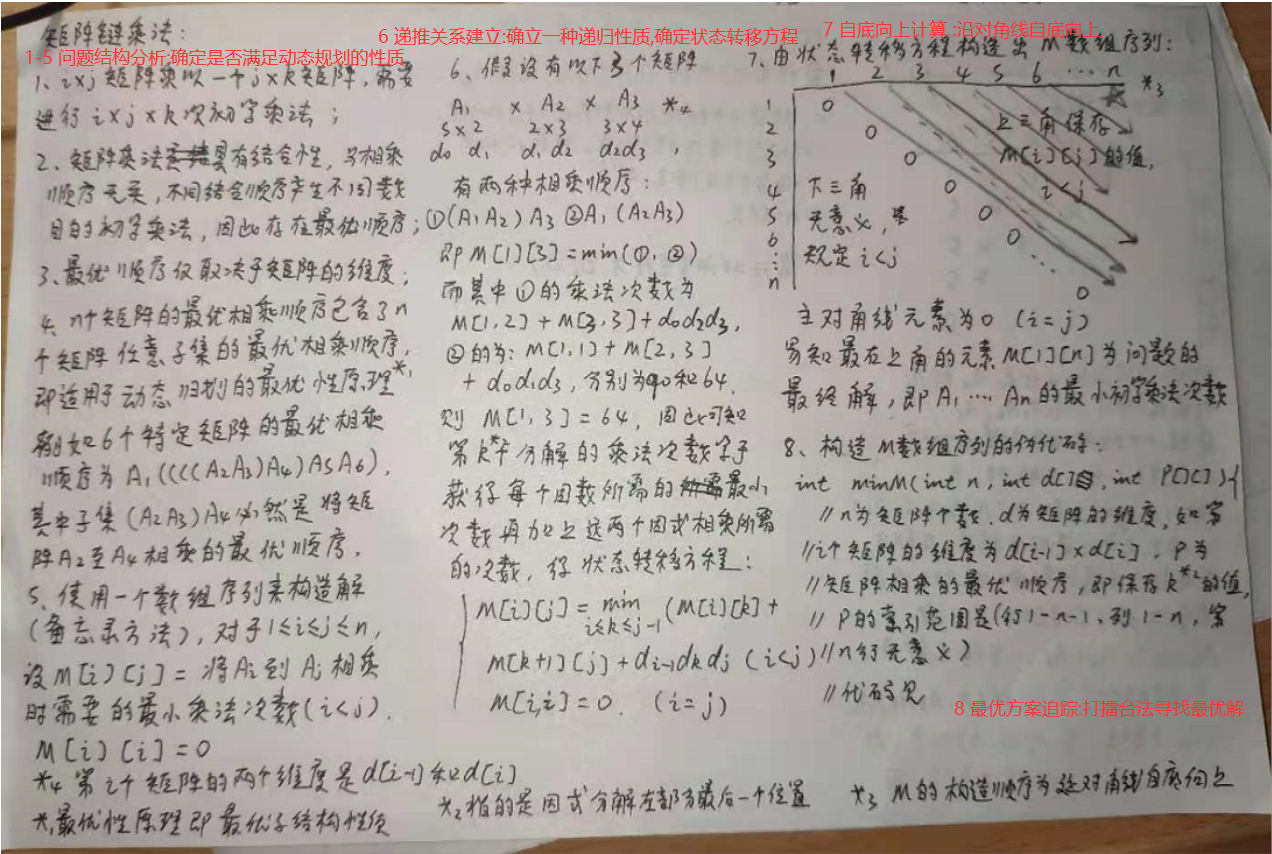 矩阵链乘法:
1-5 问题结构分析;确定是否满足动态规划的性质
1、i×j矩阵乘以一个j×k矩阵,需要
进行i×j×k次初等乘法;
2、矩阵乘法具有结合性,与相乘
顺序无关,不同结合顺序产生不同数
目的初等乘法,因此存在最优顺序;
3、最优顺序仅取决于矩阵的维度;
4、n个矩阵的最优相乘顺序包含了n
个矩阵任意子集的最优相乘顺序,
即适用于动态归划的最优性原理*1
例如6个特定矩阵的最优相乘
顺序为A1((((A2A3)A4)A5A6),
其中子集(A2A3)A4必然是将矩
阵A2至A4相乘的最优顺序.
5、使用一个数组序列来构造解
(备忘录方法),对于1≤i≤j≤n,
设M[i][j]=将Ai到Aj相乘
时需要的最小乘法次数(i<j).
M[i][i]=0
*4 第i个矩阵的两个维度是d[i-1]和d[i]
*1最优性原理即最优子结构性质
6 递推关系建立:确立一种递归性质,确定状态转移方程
6、假设有以下3个矩阵
A1 × A2 × A3 *4
5×2 2×3 3×4
d0 d1 d1 d2 d2d3,
有两种相乘顺序:
①(A1A2)A3 ②A1(A2A3)
即M[1][3]=min(①,②)
而其中①的乘法次数为
M[1,2]+M[3,3]+d0d2d3,
②的为:M[1,1]+M[2,3]
+d0d1d3,分别为90和64.
则M[1,3]=64,因此可知
第k*个分解的乘法次数等于
获得每个因数所需的最小
次数再加上这两个因式相乘所需
的次数,得状态转移方程:
M[i][j]=min(M[i][k]+
i≤k≤j-1
M[k+1][j]+di-1dkdj (i<j)
M[i,i]=0. (i=j)
*2指的是因式分解左部分最后一个位置
7 自底向上计算:沿对角线自底向上
7、由状态转移方程构造出M数组序列:
1 2 3 4 5 6 ⋯ n *3
1 0
2 0 上三角保存
3 0 M[i][j]的值,
4 下三角 0 i<j
5 无意义, 0
6 规定i<j 0
⋮ ⋱
n 0
主对角线元素为0 (i=j)
易知最右上角的元素M[1][n]为问题的
最终解,即A1⋯An的最小初等乘法次数
8、构造M数组序列的伪代码:
int minM(int n, int d[], int P[][]){
//n为矩阵个数.d为矩阵的维度,如第
//i个矩阵的维度为d[i-1]×d[i].P为
//矩阵相乘的最优顺序,即保存k*2的值,
//P的索引范围是(行1-n-1、列1-n,第
//n行无意义)
//代码见
8 最优方案追踪:打擂台法寻找最优解
*3 M的构造顺序为延对角线自底向上